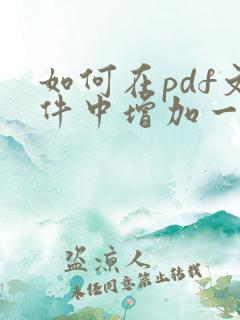 如何在pdf文
件中增加一
盗凉人
未经同意禁止转载